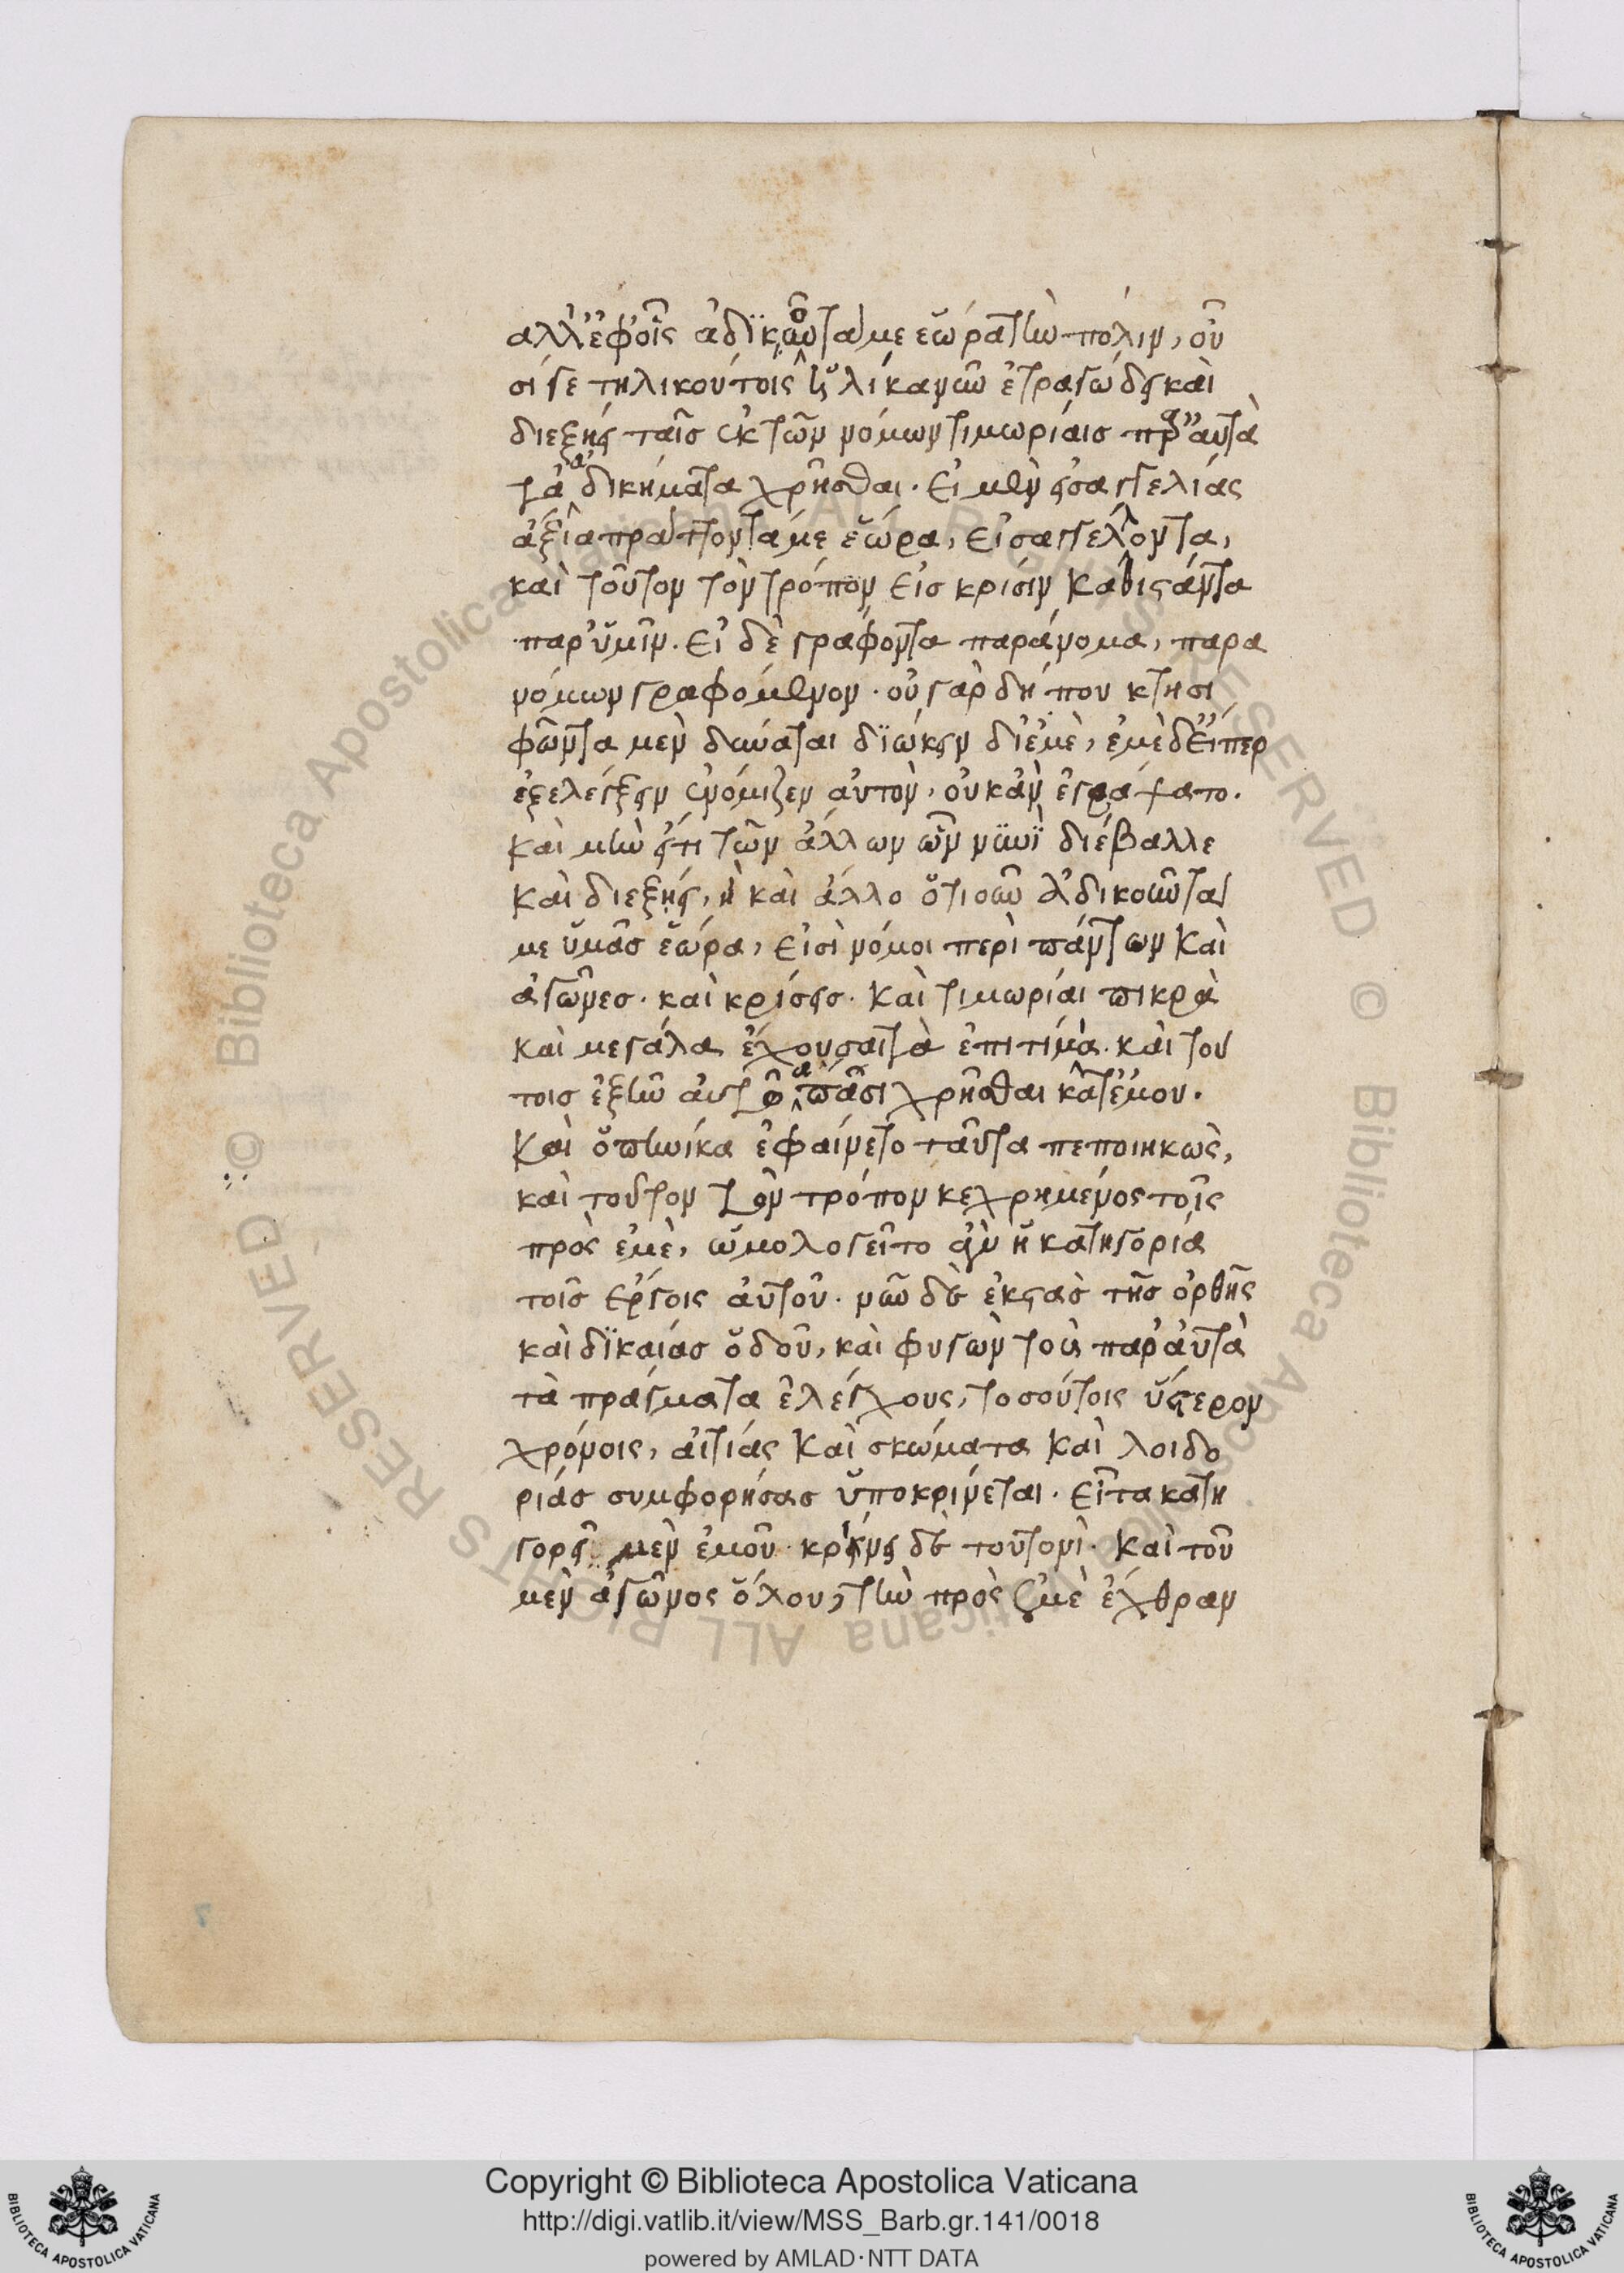 ἀλλ' ἐφ' οἷς ἀδικοῦντά με ἑώρα τὴν πόλιν, οὖ
σί γε τηλικούτοις ἡλίκα νῦν ἐτραγώδει καὶ
διεξήει ταῖς ἐκ τῶν νόμων τιμωρίαις παρ' αὐτὰ
τὰ ἀδικήματα χρῆσθαι. Εἰ μὲν εἰσαγγελίας
ἄξια πράττοντά με ἑώρα, εἰσαγγέλλοντα,
καὶ τοῦτον τὸν τρόπον εἰς κρίσιν καθιστάντα
παρ' ὑμῖν. Εἰ δὲ γράφοντα παράνομα, παρα
νόμων γραφόμενον. οὐ γὰρ δήπου κτησι
φῶντα μὲν δύναται διώκειν δι' ἐμὲ, ἐμὲ δ' εἴπερ
ἐξελέγξειν ἐνόμιζεν αὐτὸν, οὐκ ἂν ἐγράψατο.
Καὶ μὴν εἴ τι τῶν ἄλλων ὧν νυνὶ διέβαλλε
καὶ διεξήει, ἢ καὶ ἄλλο ὁτιοῦν ἀδικοῦντά
με ὑμᾶς ἑώρα, εἰσὶ νόμοι περὶ πάντων καὶ
ἀγῶνες. καὶ κρίσεις. καὶ τιμωρίαι πικρὰ
καὶ μεγάλα ἔχουσαι τὰ ἐπιτίμια. καὶ τού
τοις ἐξῆν αὐτῷ ἅπασι χρῆσθαι κατ' ἐμοῦ.
Καὶ ὁπηνίκα ἐφαίνετο ταῦτα πεποιηκὼς,
καὶ τοῦτον τὸν τρόπον κεχρημένος τοῖς
πρὸς ἐμὲ, ὡμολογεῖτο ἂν ἡ κατηγορία
τοῖς ἔργοις αὐτοῦ. νῦν δὲ ἐκστὰς τῆς ὀρθῆς
καὶ δικαίας ὁδοῦ, καὶ φυγὼν τοὺς παρ' αὐτὰ
τὰ πράγματα ἐλέγχους, τοσούτοις ὕστερον
χρόνοις, αἰτίας καὶ σκώματα καὶ λοιδο
ρίας συμφορήσας ὑποκρίνεται. Εἶτα κατη
γορεῖ μὲν ἐμοῦ. κρίνει δὲ τουτονὶ. Καὶ τοῦ
μὲν ἀγῶνος ὅλου, τὴν πρὸς ἐμὲ ἔχθραν
Copyright © Biblioteca Apostolica Vaticana
http://digi.vatlib.it/view/MSS_Barb.gr.141/0018
powered by AMLAD·NTT DATA